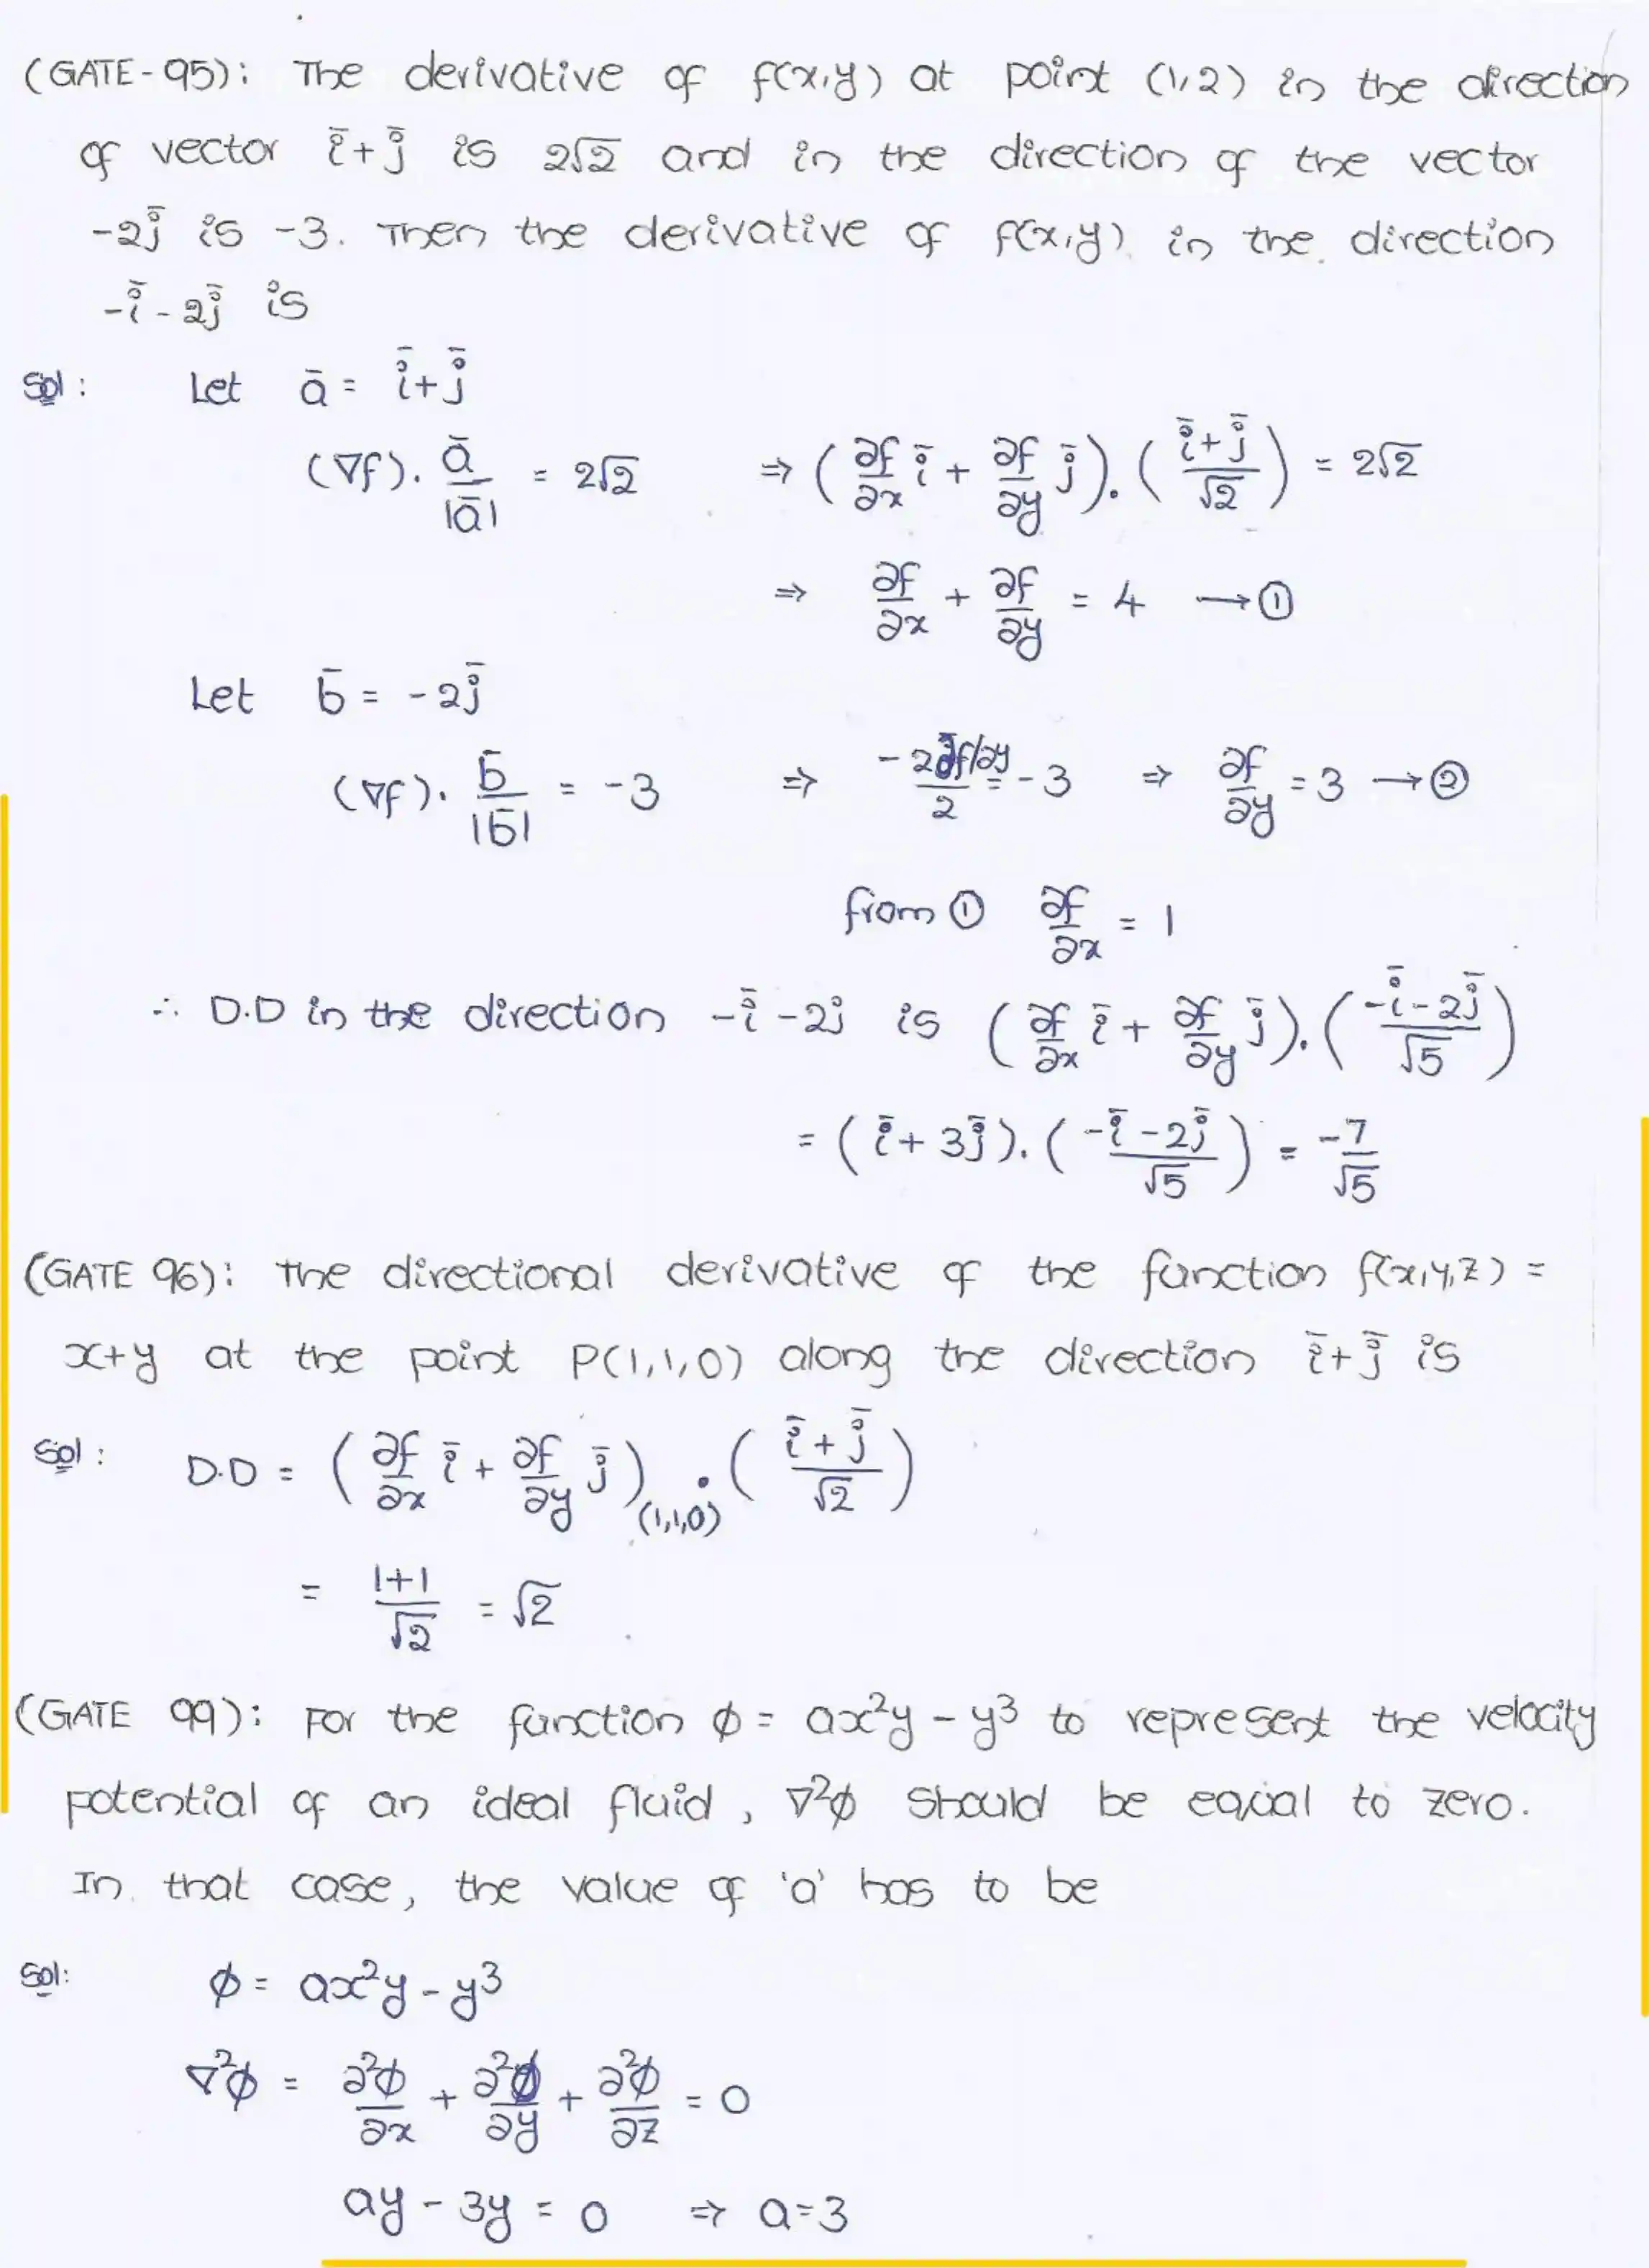 (GATE-95): The derivative of f(x,y) at point (1,2) in the direction
of vector ī+j̄ is 2√2 and in the direction of the vector
-2j̄ is -3. Then the derivative of f(x,y) in the direction
-ī-2j̄ is
Sol: Let ā = ī+j̄
(∇f). ā/|ā| = 2√2 ⇒ (∂f/∂x ī + ∂f/∂y j̄).(ī+j̄/√2) = 2√2
⇒ ∂f/∂x + ∂f/∂y = 4 → ①
Let b̄ = -2j̄
(∇f). b̄/|b̄| = -3 ⇒ -2∂f/∂y/2 = -3 ⇒ ∂f/∂y = 3 → ②
from ① ∂f/∂x = 1
∴ D.D in the direction -ī-2j is (∂f/∂x ī + ∂f/∂y j̄).(-ī-2j̄/√5)
= (ī+3j̄).(-ī-2j̄/√5) = -7/√5
(GATE 96): The directional derivative of the function f(x,y,z) =
x+y at the point P(1,1,0) along the direction ī+j̄ is
Sol: D.D = (∂f/∂x ī + ∂f/∂y j̄)(1,1,0) . (ī+j̄/√2)
= 1+1/√2 = √2
(GATE 99): For the function ϕ = ax²y - y³ to represent the velocity
potential of an ideal fluid, ∇²ϕ should be equal to zero.
In that case, the value of 'a' has to be
Sol: ϕ = ax²y - y³
∇²ϕ = ∂²ϕ/∂x + ∂²ϕ/∂y + ∂²ϕ/∂z = 0
ay - 3y = 0 ⇒ a=3